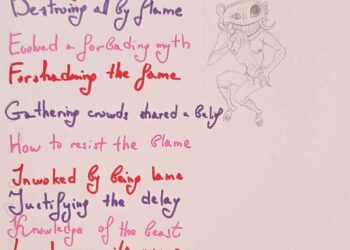 Destroing al by flame
Evolved a forbading myth
Forshadwing the fame
Gathering crowds shared a belif
How to resist the blame
Inwoked by being lame
Justifying the delay
Knowledge of the beast